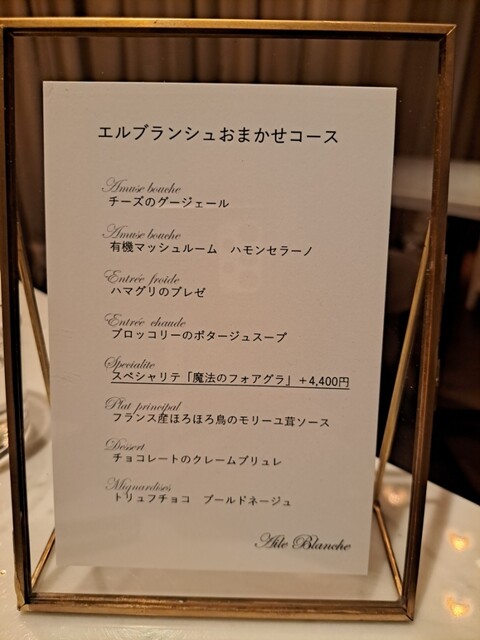 エルブランシュおまかせコース
Amuse bouche
チーズのグージェール
Amuse bouche
有機マッシュルーム　ハモンセラーノ
Entrée froide
ハマグリのブレゼ
Entrée chaude
ブロッコリーのポタージュスープ
Specialite
スペシャリテ「魔法のフォアグラ」＋4,400円
Plat principal
フランス産ほろほろ鳥のモリーユ茸ソース
Dessert
チョコレートのクレームブリュレ
Mignardises
トリュフチョコ　ブールドネージュ
Aile Blanche